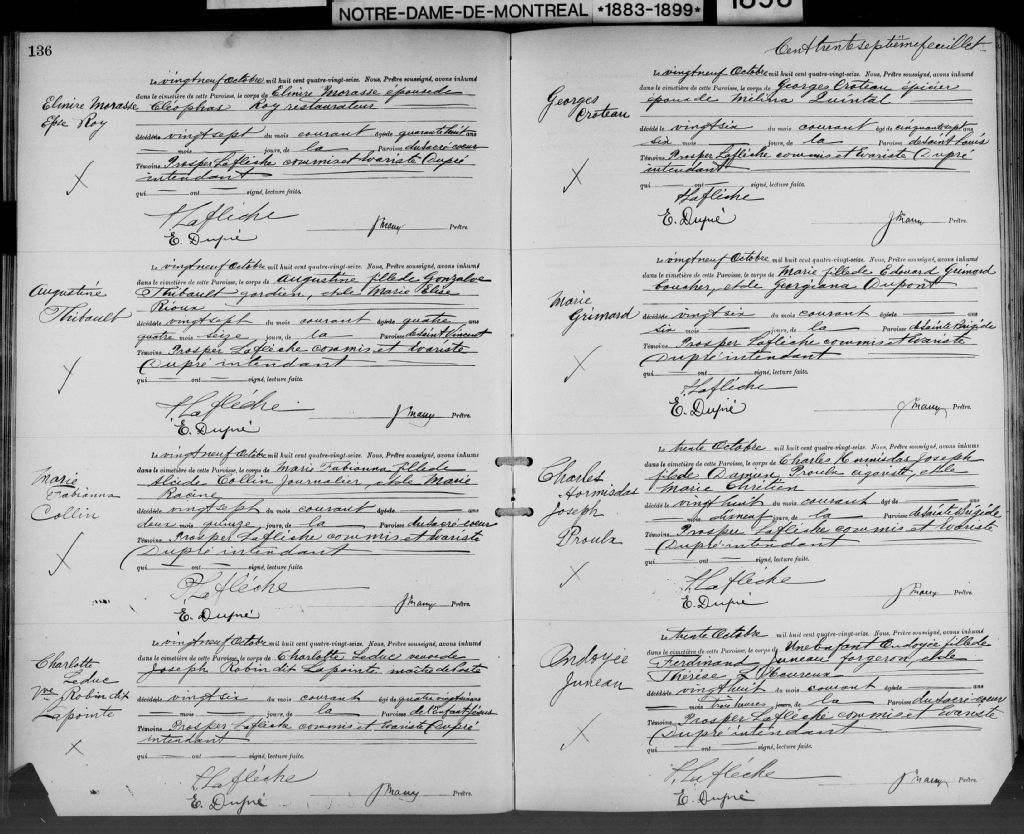 NOTRE-DAME-DE-MONTREAL *1883-1899*
1896
136
Elmire Morasse
Epse Roy
Le vingt neuf Octobre mil huit cent quatre-vingt-seize. Nous, Prêtre soussigné, avons inhumé
dans le cimetière de cette Paroisse, le corps de Elmire Morasse épouse de
Cléophas Roy restaurateur
décédée vingt sept du mois courant âgée de quarante huit ans
— mois — jours, de la Paroisse du Sacré coeur
Témoins Prosper Laflèche commis et Evariste Dupré
intendant
qui — ont — signé, lecture faite.
P. Laflèche
E. Dupré
Prêtre.
Augustine
Thibault
Le vingt neuf Octobre mil huit cent quatre-vingt-seize. Nous, Prêtre soussigné, avons inhumé
dans le cimetière de cette Paroisse, le corps de Augustine fille de Gonzalve
Thibault gardien, et de Marie Elise
Rioux
décédée vingt sept du mois courant âgée de quatre
quatre mois seize jours, de la Paroisse de Saint Vincent
Témoins Prosper Laflèche commis et Evariste
Dupré intendant
qui — ont — signé, lecture faite.
P. Laflèche
E. Dupré
Prêtre.
Marie
Fabianna
Collin
Le vingt neuf Octobre mil huit cent quatre-vingt-seize. Nous, Prêtre soussigné, avons inhumé
dans le cimetière de cette Paroisse, le corps de Marie Fabianna fille de
Alcide Collin Journalier, et de Marie
Racine
décédée vingt sept du mois courant âgée de —
deux mois quinze jours, de la Paroisse du Sacré coeur
Témoins Prosper Laflèche commis et Evariste
Dupré intendant
qui — ont — signé, lecture faite.
P. Laflèche
E. Dupré
Prêtre.
Charlotte
Leduc
Vve Robin dit
Lapointe
Le vingt neuf Octobre mil huit cent quatre-vingt-seize. Nous, Prêtre soussigné, avons inhumé
dans le cimetière de cette Paroisse, le corps de Charlotte Leduc veuve de
Joseph Robin dit Lapointe maître de poste
décédée vingt six du mois courant âgée de quatre vingt six ans
— mois — jours, de la Paroisse de l'Enfant Jésus
Témoins Prosper Laflèche commis et Evariste Dupré
intendant
qui — ont — signé, lecture faite.
P. Laflèche
E. Dupré
Prêtre.
Cent trente septième feuillet
Georges
Croteau
Le vingt neuf Octobre mil huit cent quatre-vingt-seize. Nous, Prêtre soussigné, avons inhumé
dans le cimetière de cette Paroisse, le corps de Georges Croteau épicier
époux de Mélina Quintal
décédé le vingt six du mois courant âgé de cinquante sept ans
six mois — jours, de la Paroisse de Saint Louis
Témoins Prosper Laflèche commis et Evariste Dupré
intendant
qui — ont — signé, lecture faite.
P. Laflèche
E. Dupré
Prêtre.
Marie
Grimard
Le vingt neuf Octobre mil huit cent quatre-vingt-seize. Nous, Prêtre soussigné, avons inhumé
dans le cimetière de cette Paroisse, le corps de Marie fille de Edouard Grimard
boucher, et de Georgiana Dupont
décédée vingt six du mois courant âgée de —
six mois — jours, de la Paroisse de Sainte Brigide
Témoins Prosper Laflèche commis et Evariste
Dupré intendant
qui — ont — signé, lecture faite.
P. Laflèche
E. Dupré
Prêtre.
Charles
Hormisdas
Joseph
Proulx
Le trente Octobre mil huit cent quatre-vingt-seize. Nous, Prêtre soussigné, avons inhumé
dans le cimetière de cette Paroisse, le corps de Charles Hormisdas Joseph
fils de Damien Proulx cigariste, et de
Marie Chrétien
décédé le vingt huit du mois courant âgé de —
— mois dixneuf jours, de la Paroisse de Sainte Brigide
Témoins Prosper Laflèche commis et Evariste
Dupré intendant
qui — ont — signé, lecture faite.
P. Laflèche
E. Dupré
Prêtre.
Ondoyée
Juneau
Le trente Octobre mil huit cent quatre-vingt-seize. Nous, Prêtre soussigné, avons inhumé
dans le cimetière de cette Paroisse, le corps d'Une enfant Ondoyée fille de
Ferdinand Juneau forgeron et de
Thérèse L'Heureux
décédée vingt huit du mois courant âgée de —
— mois trois heures jours, de la Paroisse du Sacré coeur
Témoins Prosper Laflèche commis et Evariste
Dupré intendant
qui — ont — signé, lecture faite.
P. Laflèche
E. Dupré
Prêtre.